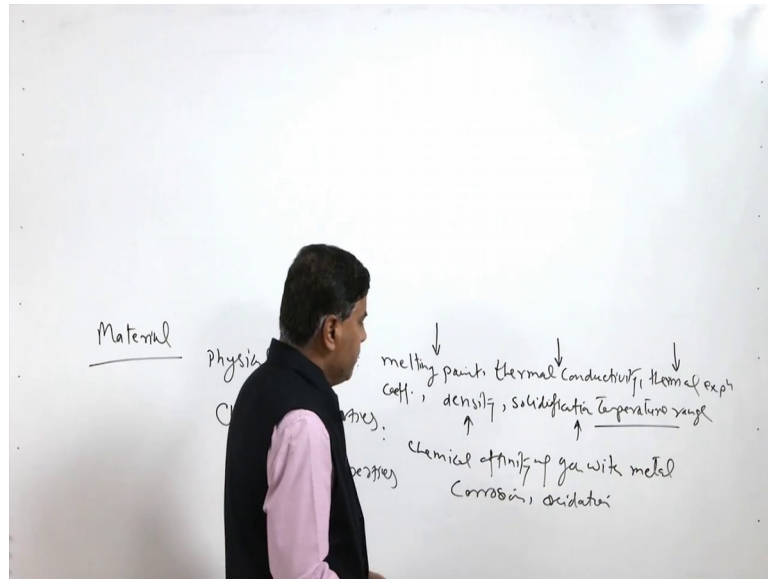 Material
melting point, thermal conductivity, thermal expn
coeff., density, solidification Temperature range
chemical affinity of gas with metal
Corrosion, oxidation